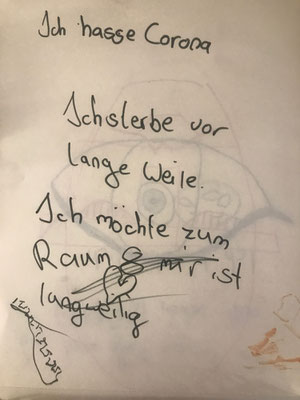 Ich hasse Corona
Ich sterbe vor
lange Weile.
Ich möchte zum
Raum 8 mir ist
langweilig